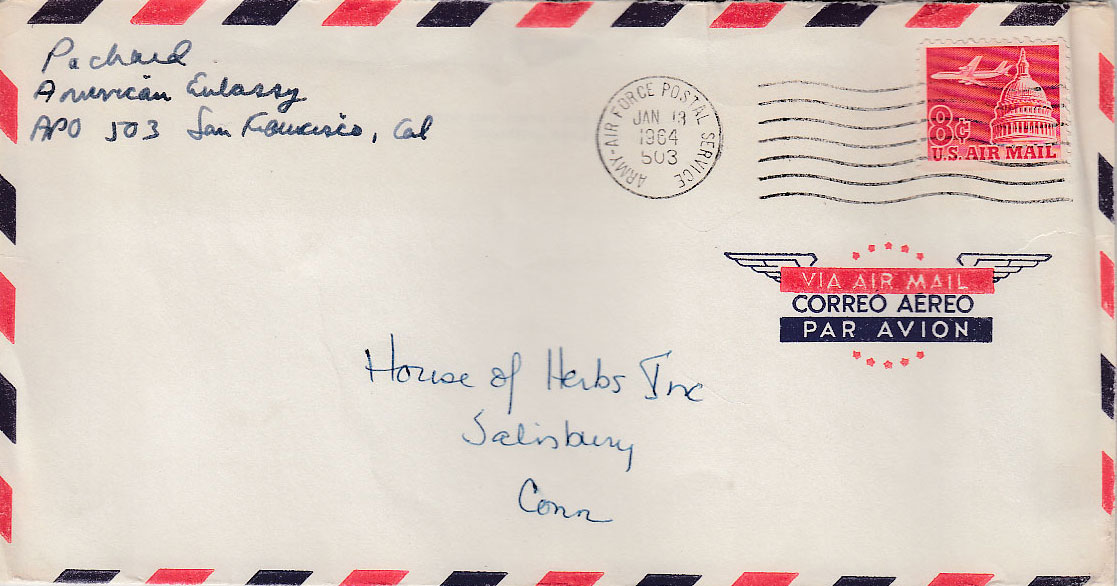 Packard
American Embassy
APO 503 San Francisco, Cal
ARMY-AIR FORCE POSTAL SERVICE
JAN 13
1964
503
8¢
U.S. AIR MAIL
VIA AIR MAIL
CORREO AÉREO
PAR AVION
House of Herbs Inc
Salisbury
Conn